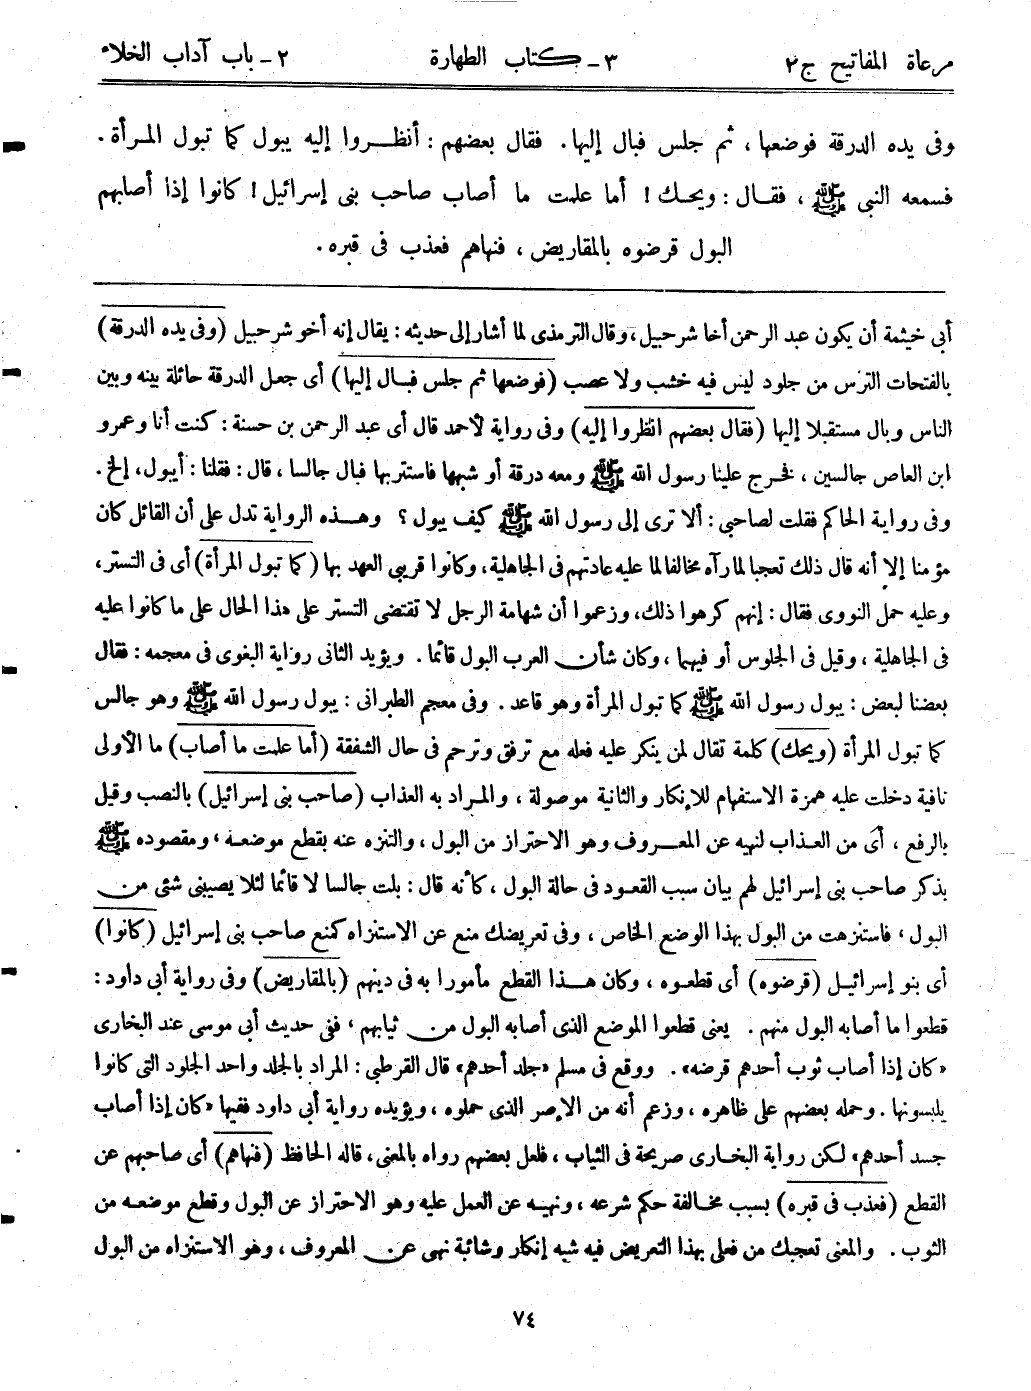 مرعاة المفاتيح ج ٢ ٣ـ كتاب الطهارة ٢ـ باب آداب الخلاء
وفى يده الدرقة فوضعها، ثم جلس فبال إليها. فقال بعضهم: أنظروا إليه يبول كما تبول المرأة.
فسمعه النبى ﷺ، فقال: ويحك! أما علمت ما أصاب صاحب بنى إسرائيل! كانوا إذا أصابهم
البول قرضوه بالمقاريض، فنهاهم فعذب فى قبره.
أبى خيثمة أن يكون عبد الرحمن أخا شرحبيل، وقال الترمذى لما أشار إلى حديثه: يقال إنه أخو شرحبيل (وفى يده الدرقة)
بالفتحات الترس من جلود ليس فيه خشب ولا عصب (فوضعها ثم جلس فبال إليها) أى جعل الدرقة حائلة بينه وبين
الناس وبال مستقبلا إليها (فقال بعضهم انظروا إليه) وفى رواية لأحمد قال أى عبد الرحمن بن حسنة: كنت أنا وعمرو
ابن العاص جالسين، فخرج علينا رسول الله ﷺ ومعه درقة أو شبهها فاستتر بها فبال جالسا، قال: فقلنا: أيبول، إلخ.
وفى رواية الحاكم فقلت لصاحبى: ألا ترى إلى رسول الله ﷺ كيف يبول؟ وهذه الرواية تدل على أن القائل كان
مؤمنا إلا أنه قال ذلك تعجبا لما رآه مخالفا لما عليه عادتهم فى الجاهلية، وكانوا قريبى العهد بها (كما تبول المرأة) أى فى التستر،
وعليه حمل النووى فقال: إنهم كرهوا ذلك، وزعموا أن شهامة الرجل لا تقتضى التستر على هذا الحال على ما كانوا عليه
فى الجاهلية، وقيل فى الجلوس أو فيهما، وكان شأن العرب البول قائما. ويؤيد الثانى رواية البغوى فى معجمه: فقال
بعضنا لبعض: يبول رسول الله ﷺ كما تبول المرأة وهو قاعد. وفى معجم الطبرانى: يبول رسول الله ﷺ وهو جالس
كما تبول المرأة (ويحك) كلمة تقال لمن ينكر عليه فعله مع ترفق وترحم فى حال الشفقة (أما علمت ما أصاب) ما الأولى
نافية دخلت عليه همزة الاستفهام للإنكار والثانية موصولة، والمراد به العذاب (صاحب بنى إسرائيل) بالنصب وقيل
بالرفع، أى من العذاب لنهيه عن المعروف وهو الاحتراز من البول، والتنزه عنه بقطع موضعه، ومقصوده ﷺ
بذكر صاحب بنى إسرائيل لهم بيان سبب القعود فى حالة البول، كأنه قال: بلت جالسا لا قائما لئلا يصيبنى شئى من
البول، فاستنزهت من البول بهذا الوضع الخاص، وفى تعريضك منع عن الاستنزاه كمنع صاحب بنى إسرائيل (كانوا)
أى بنو إسرائيل (قرضوه) أى قطعوه، وكان هذا القطع مأمورا به فى دينهم (بالمقاريض) وفى رواية أبى داود:
قطعوا ما أصابه البول منهم. يعنى قطعوا الموضع الذى أصابه البول من ثيابهم، ففى حديث أبى موسى عند البخارى
«كان إذا أصاب ثوب أحدهم قرضه». ووقع فى مسلم «جلد أحدهم» قال القرطبى: المراد بالجلد واحد الجلود التى كانوا
يلبسونها. وحمله بعضهم على ظاهره، وزعم أنه من الإصر الذى حملوه، ويؤيده رواية أبى داود ففيها «كان إذا أصاب
جسد أحدهم» لكن رواية البخارى صريحة فى الثياب، فلعل بعضهم رواه بالمعنى، قاله الحافظ (فنهاهم) أى صاحبهم عن
القطع (فعذب فى قبره) بسبب مخالفة حكم شرعه، ونهيه عن العمل عليه وهو الاحتراز عن البول وقطع موضعه من
الثوب. والمعنى تعجبك من فعلى بهذا التعريض فيه شبه إنكار وشائبة نهى عن المعروف، وهو الاستنزاه من البول
٧٤